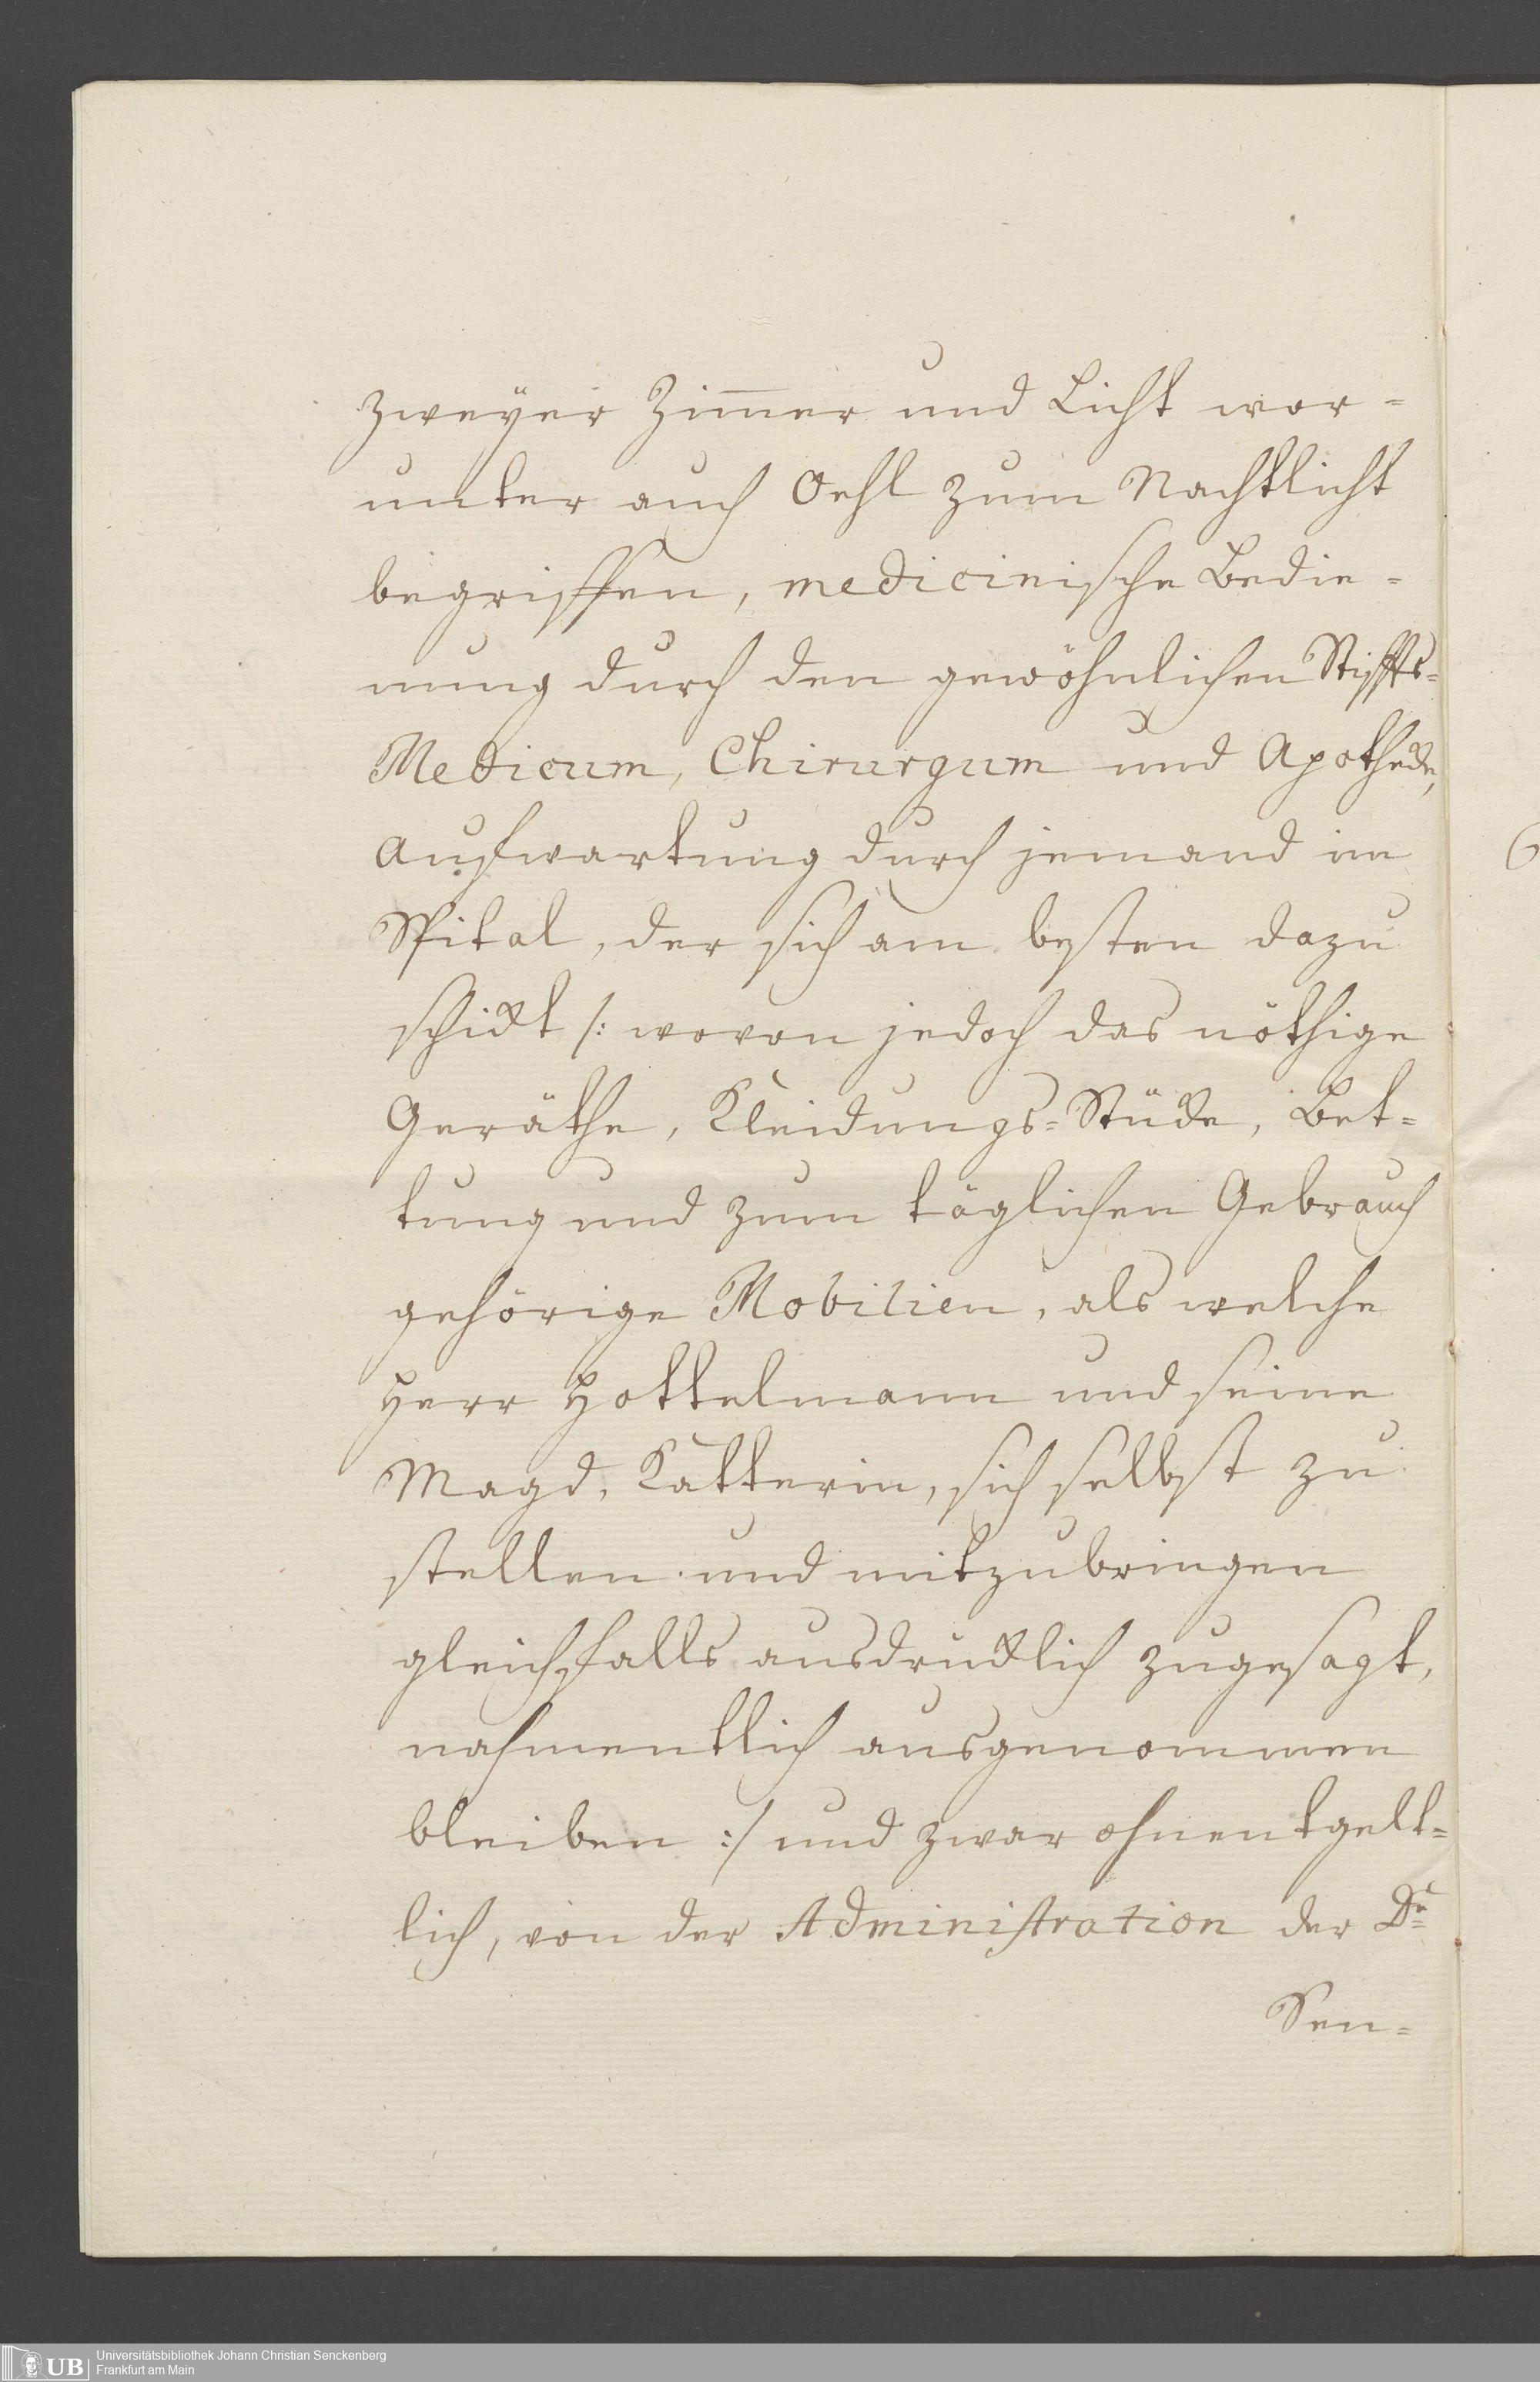 zweÿer Zim̅er und Licht wor-
unter auch Oehl zum Nachtlicht
begriffen, medicinische Bedie-
nung durch den gewöhnlichen Stiffts-
Medicum, Chirurgum und Apothecke,
Aufwartung durch jemand im
Spital, der sich am besten dazu
schickt /: wovon jedoch das nöthige
Geräthe, Kleidungs-Stücke, Bet-
tung und zum täglichen Gebrauch
gehörige Mobilien, als welche
Herr Hottelmann und seine
Magd, Katterin, sich selbst zu
stellen und mitzubringen
gleichfalls ausdrucklich zugesagt,
nahmentlich ausgenommen
bleiben :/ und zwar ohnentgelt-
lich, von der Administration der Dr
Sen-
UB
Universitätsbibliothek Johann Christian Senckenberg
Frankfurt am Main